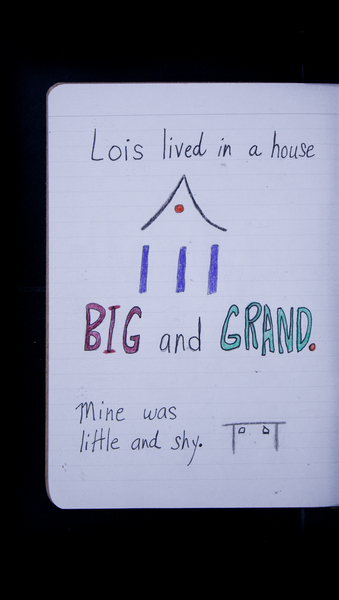 Lois lived in a house
BIG and GRAND.
Mine was
little and shy.